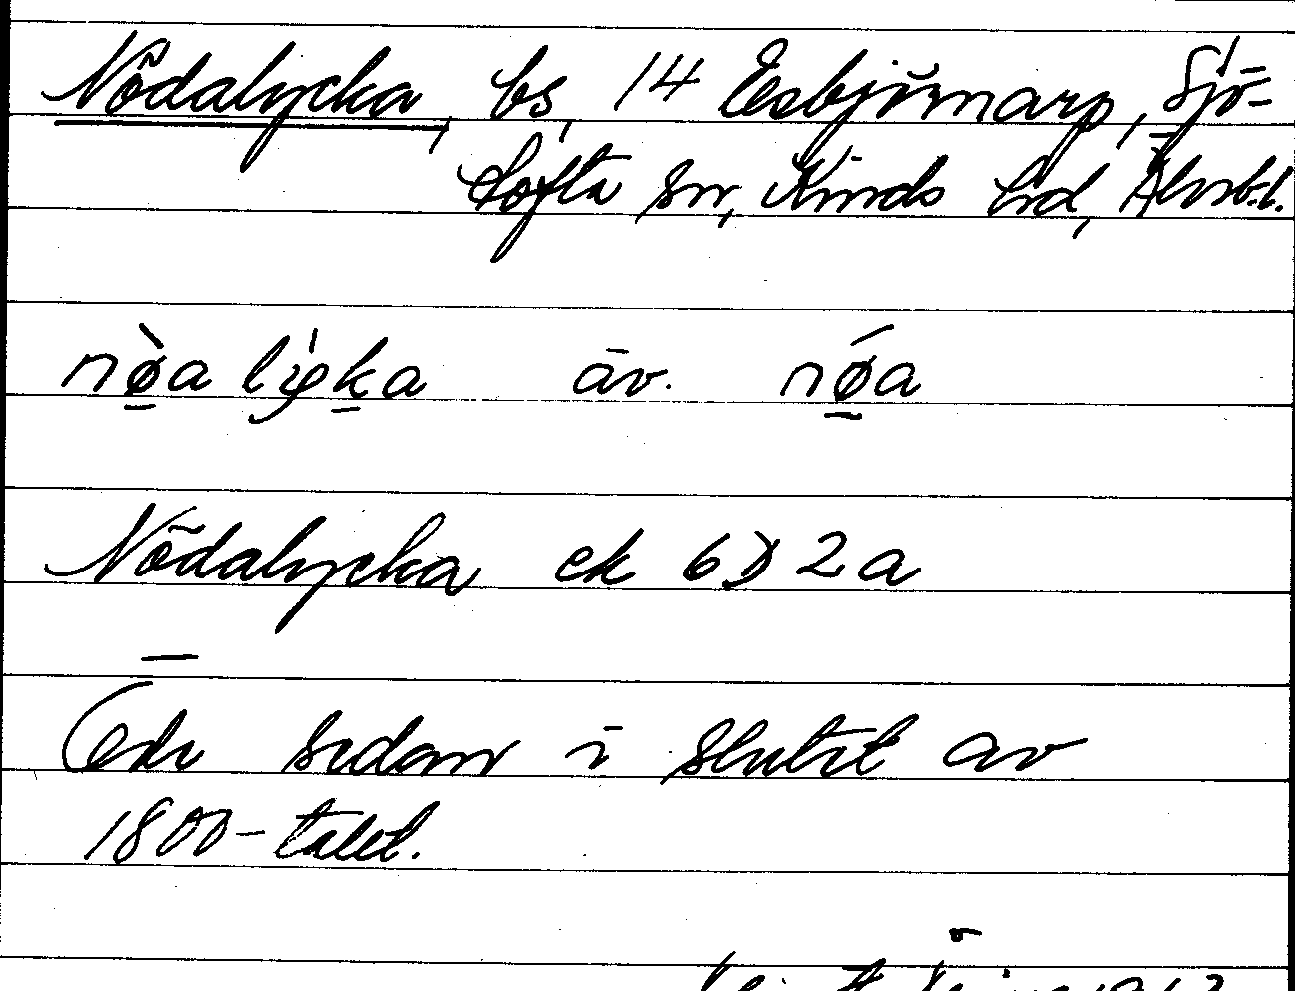 Nödalycka, bs, 14 Esbjörnarp, Sjö-
tofta sn, Kinds hd, Älvsb.l.
nø̀a lýka äv. nǿa
Nödalycka ek 6D2a
Öde sedan i slutet av
1800-talet.